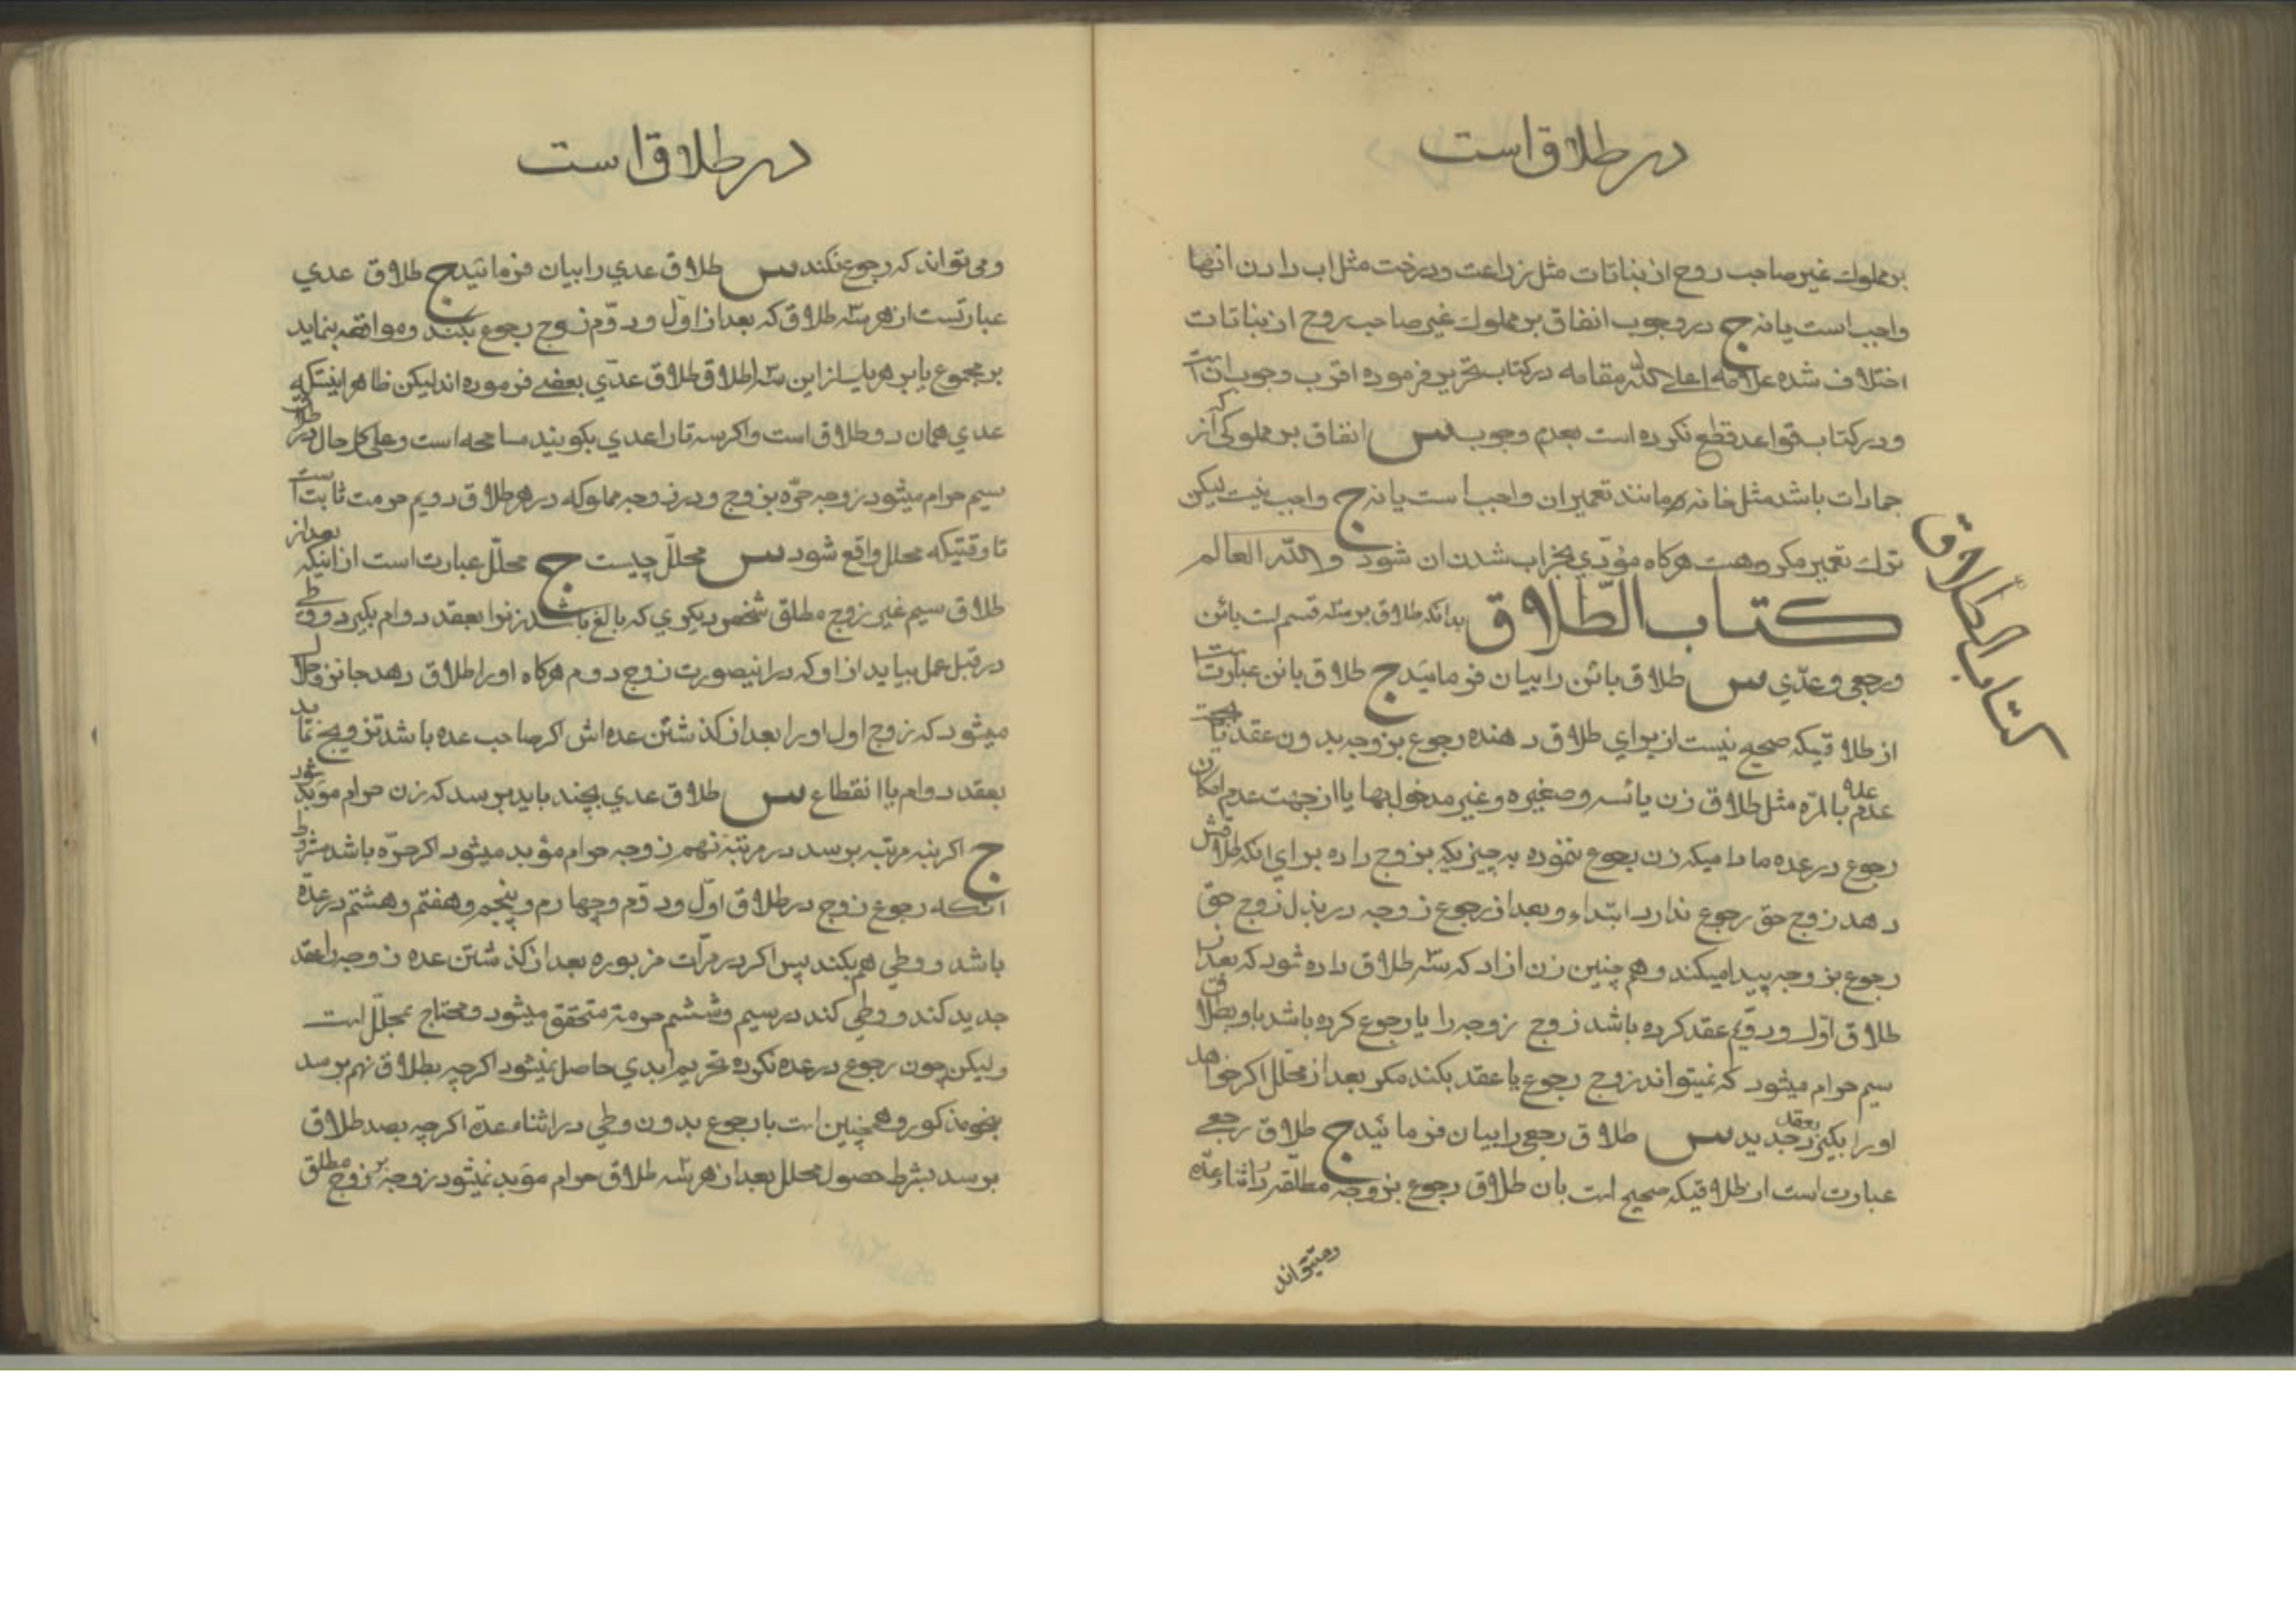 در طلاق است
بر مملوك غیر صاحب روح از بناتات مثل زراعت و درخت مثل اب دادن انها
واجب است یا نه ج در وجوب انفاق بر مملوك غیر صاحب روح از بناتات
اختلاف شده علامه اعلی الله مقامه در کتاب تحریر فرموده اقرب وجوب ان است
و در کتاب قواعد قطع نکرده است بعدم وجوب س انفاق بر مملوکی که از
جمادات باشد مثل خانه و مانند تعمیر ان واجب است یا نه ج واجب نیست لیکن
ترك تعمیر مکروهست هرکاه مؤدّي بخراب شدن ان شود والله العالم
کتاب الطلاق
کتاب الطّلاق بدانکه طلاق بر سه قسم است بائن
و رجعی و عدّي س طلاق بائن را بیان فرمائید ج طلاق بائن عبارت است
از طلاقیکه صحیح نیست از برای طلاق دهنده رجوع بزوجه بدون عقد یا بجهت
عدم عده بالمرّه مثل طلاق زن یائسه و صغیره و غیر مدخول بها یا از جهت عدم امکان
رجوع در عده مادامیکه زن رجوع ننموده به چیزیکه بزوج داده برای انکه طلاقش
دهد زوج حق رجوع ندارد ابتداء و بعد از رجوع زوجه در بذل زوج حق
رجوع بزوجه پیدا میکند و هم چنین زن ازاد که سه طلاق داده شود که بعد از
طلاق اوّل و دوّم عقد کرده باشد زوج زوجه را یا رجوع کرده باشد باو بطلاق
سیم حرام میشود که نمیتواند زوج رجوع یا عقد بکند مکر بعد از محلّل اکر خواهد
او را بکیرد بعقد جدید س طلاق رجعی را بیان فرمائید ج طلاق رجعی
عبارت است از طلاقیکه صحیح است بان طلاق رجوع بزوجه مطلّقه در اثناء عدّه
و میتواند
در طلاق است
و می تواند که رجوع نکند س طلاق عدي را بیان فرمائید ج طلاق عدي
عبارتست از هر سه طلاق که بعد از اوّل و دوّم زوج رجوع بکند و مواقعه بنماید
بر مجموع یا بر هریك از این سه طلاق طلاق عدّي بعضی فرموده اند لیکن ظاهر اینستکه
عدي همان دو طلاق است و اکر سه تا را عدي بکویند مسامحه است و علی کل حال در طلاق
سیم حرام میشود زوجه حرّه بزوج و در زوجه مملوکه در هر طلاق دویم حرمت ثابت است
تا وقتیکه محلل واقع شود س محلّل چیست ج محلّل عبارت است از اینکه بعد از
طلاق سیم غیر زوج مطلق شخص دیکری که بالغ باشد زنرا بعقد دوام بکیرد و وطی
در قبل عمل بیاید از او که در اینصورت زوج دوم هرکاه او را طلاق دهد جائز و حلال
میشود که زوج اول او را بعد از کذشتن عده اش اکر صاحب عده باشد تزویج نماید
بعقد دوام یا انقطاع س طلاق عدي بچند باید برسد که زن حرام مؤبد شود
ج اکر بنه مرتبه برسد در مرتبه نهم زوجه حرام مؤبد میشود اکر حرّه باشد بشرط
انکه رجوع زوج در طلاق اوّل و دوّم و چهارم و پنجم و هفتم و هشتم در عدّه
باشد و وطي هم بکند پس اکر در مرّات مزبوره بعد از کذشتن عده زوجه را عقد
جدید کند و وطي کند در سیم و ششم حرمة متحقق میشود و محتاج بمحلّل است
ولیکن چون رجوع در عده نکرده تحریم ابدي حاصل نمیشود اکرچه بطلاق نهم برسد
بنحو مذکور و همچنین است با رجوع بدون وطي در اثناء عدّه اکرچه بصد طلاق
برسد بشرط حصول محلل بعد از هر سه طلاق حرام مؤبد نمیشود زوجه بر زوج مطلق